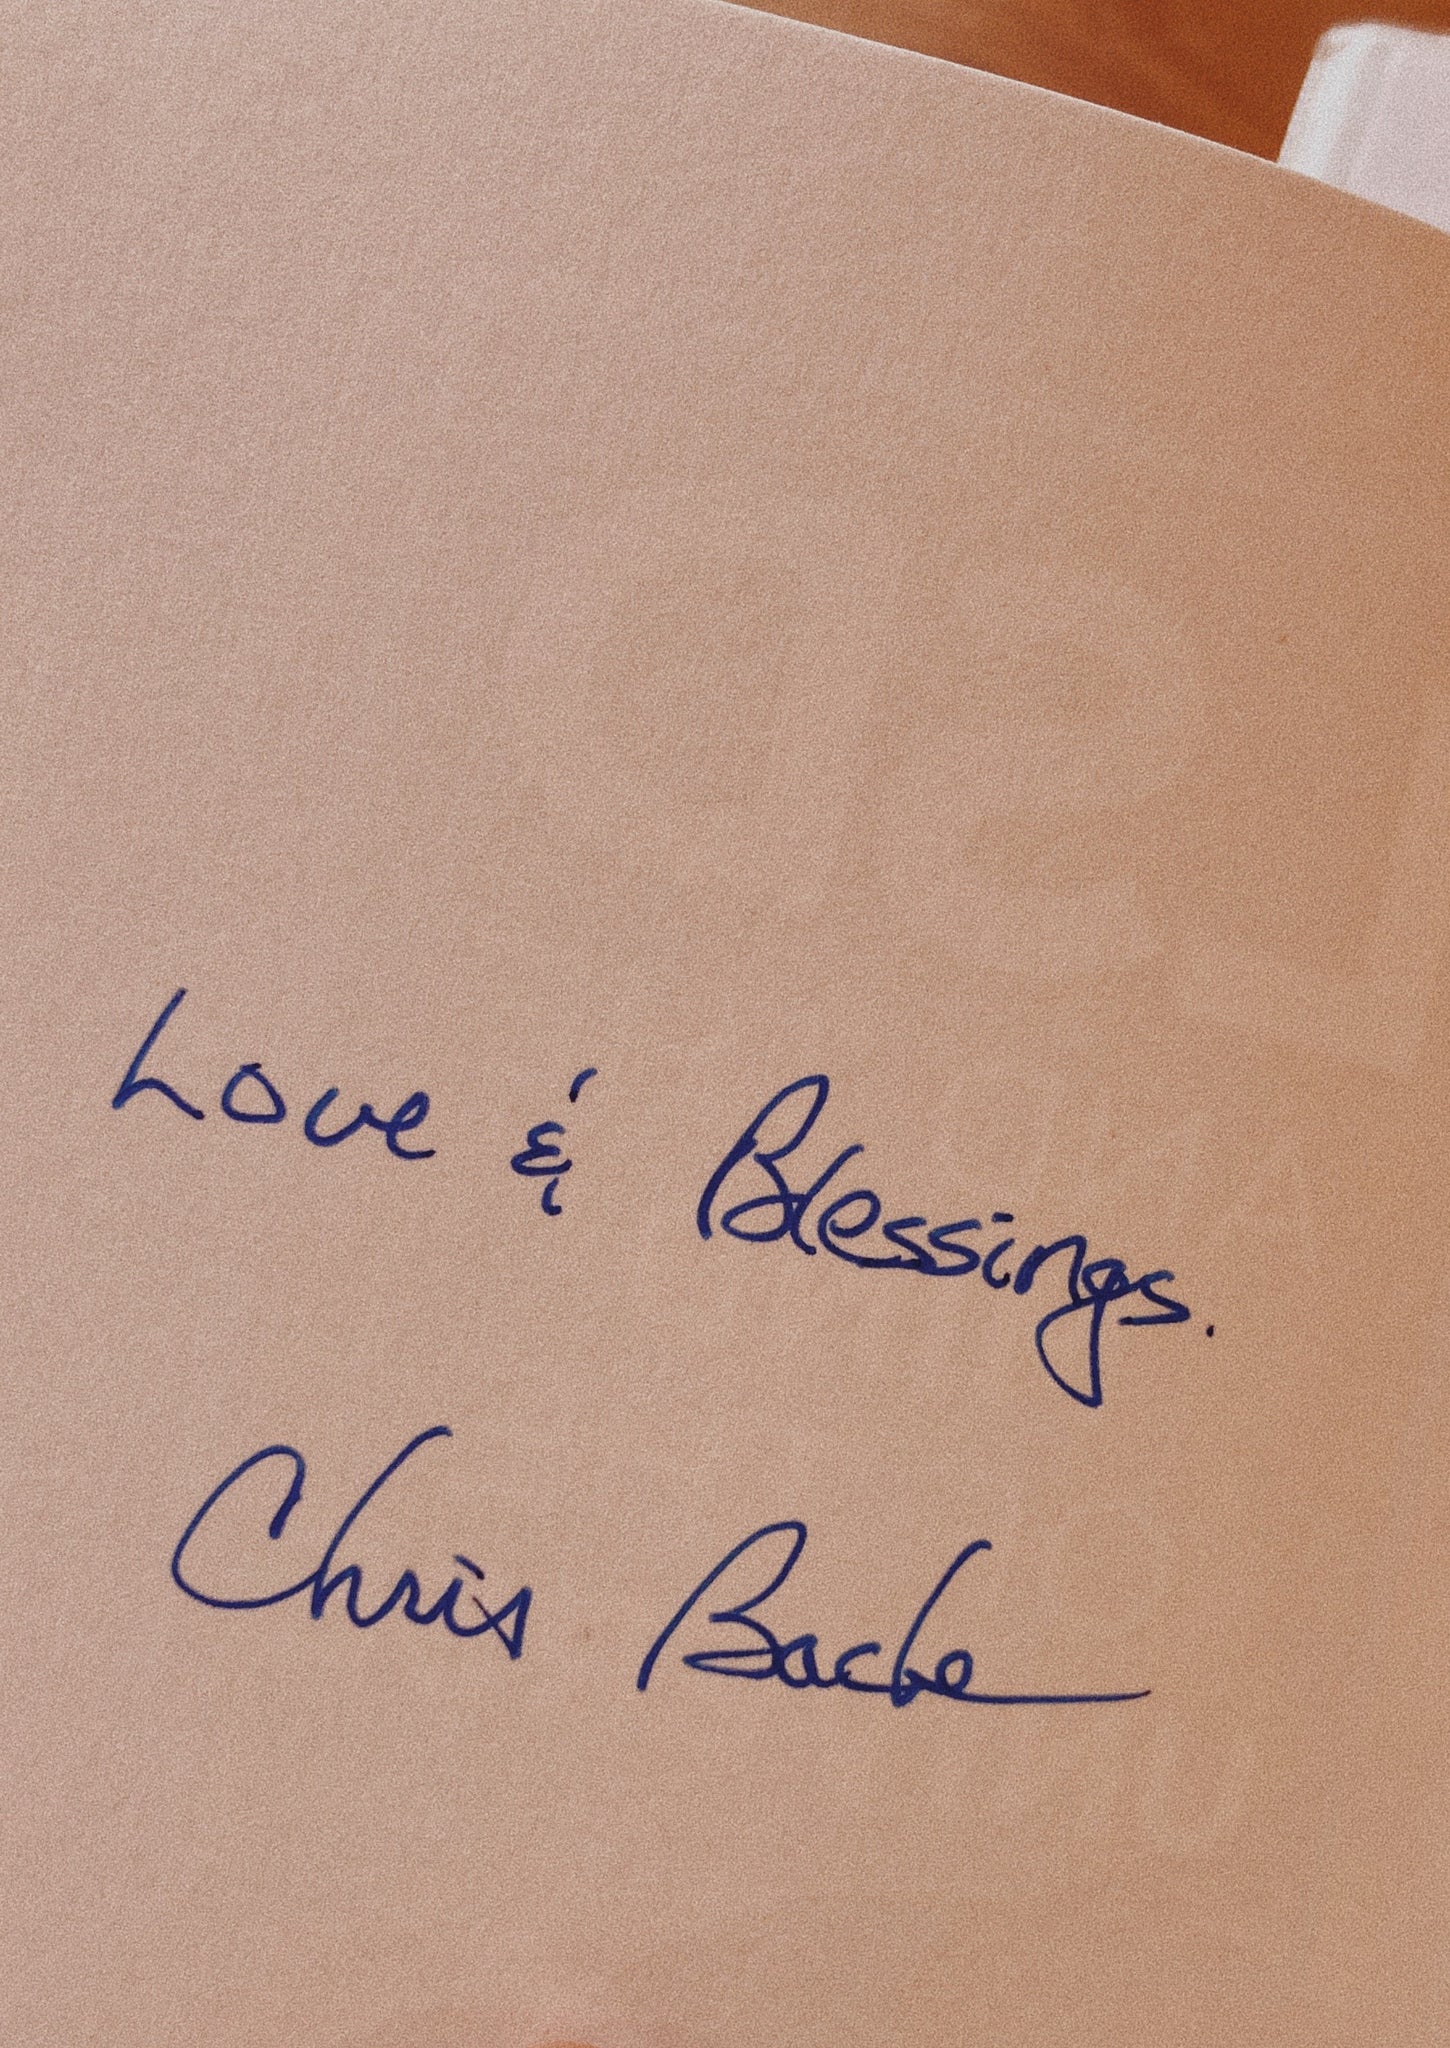 Love & Blessings.
Chris Bache